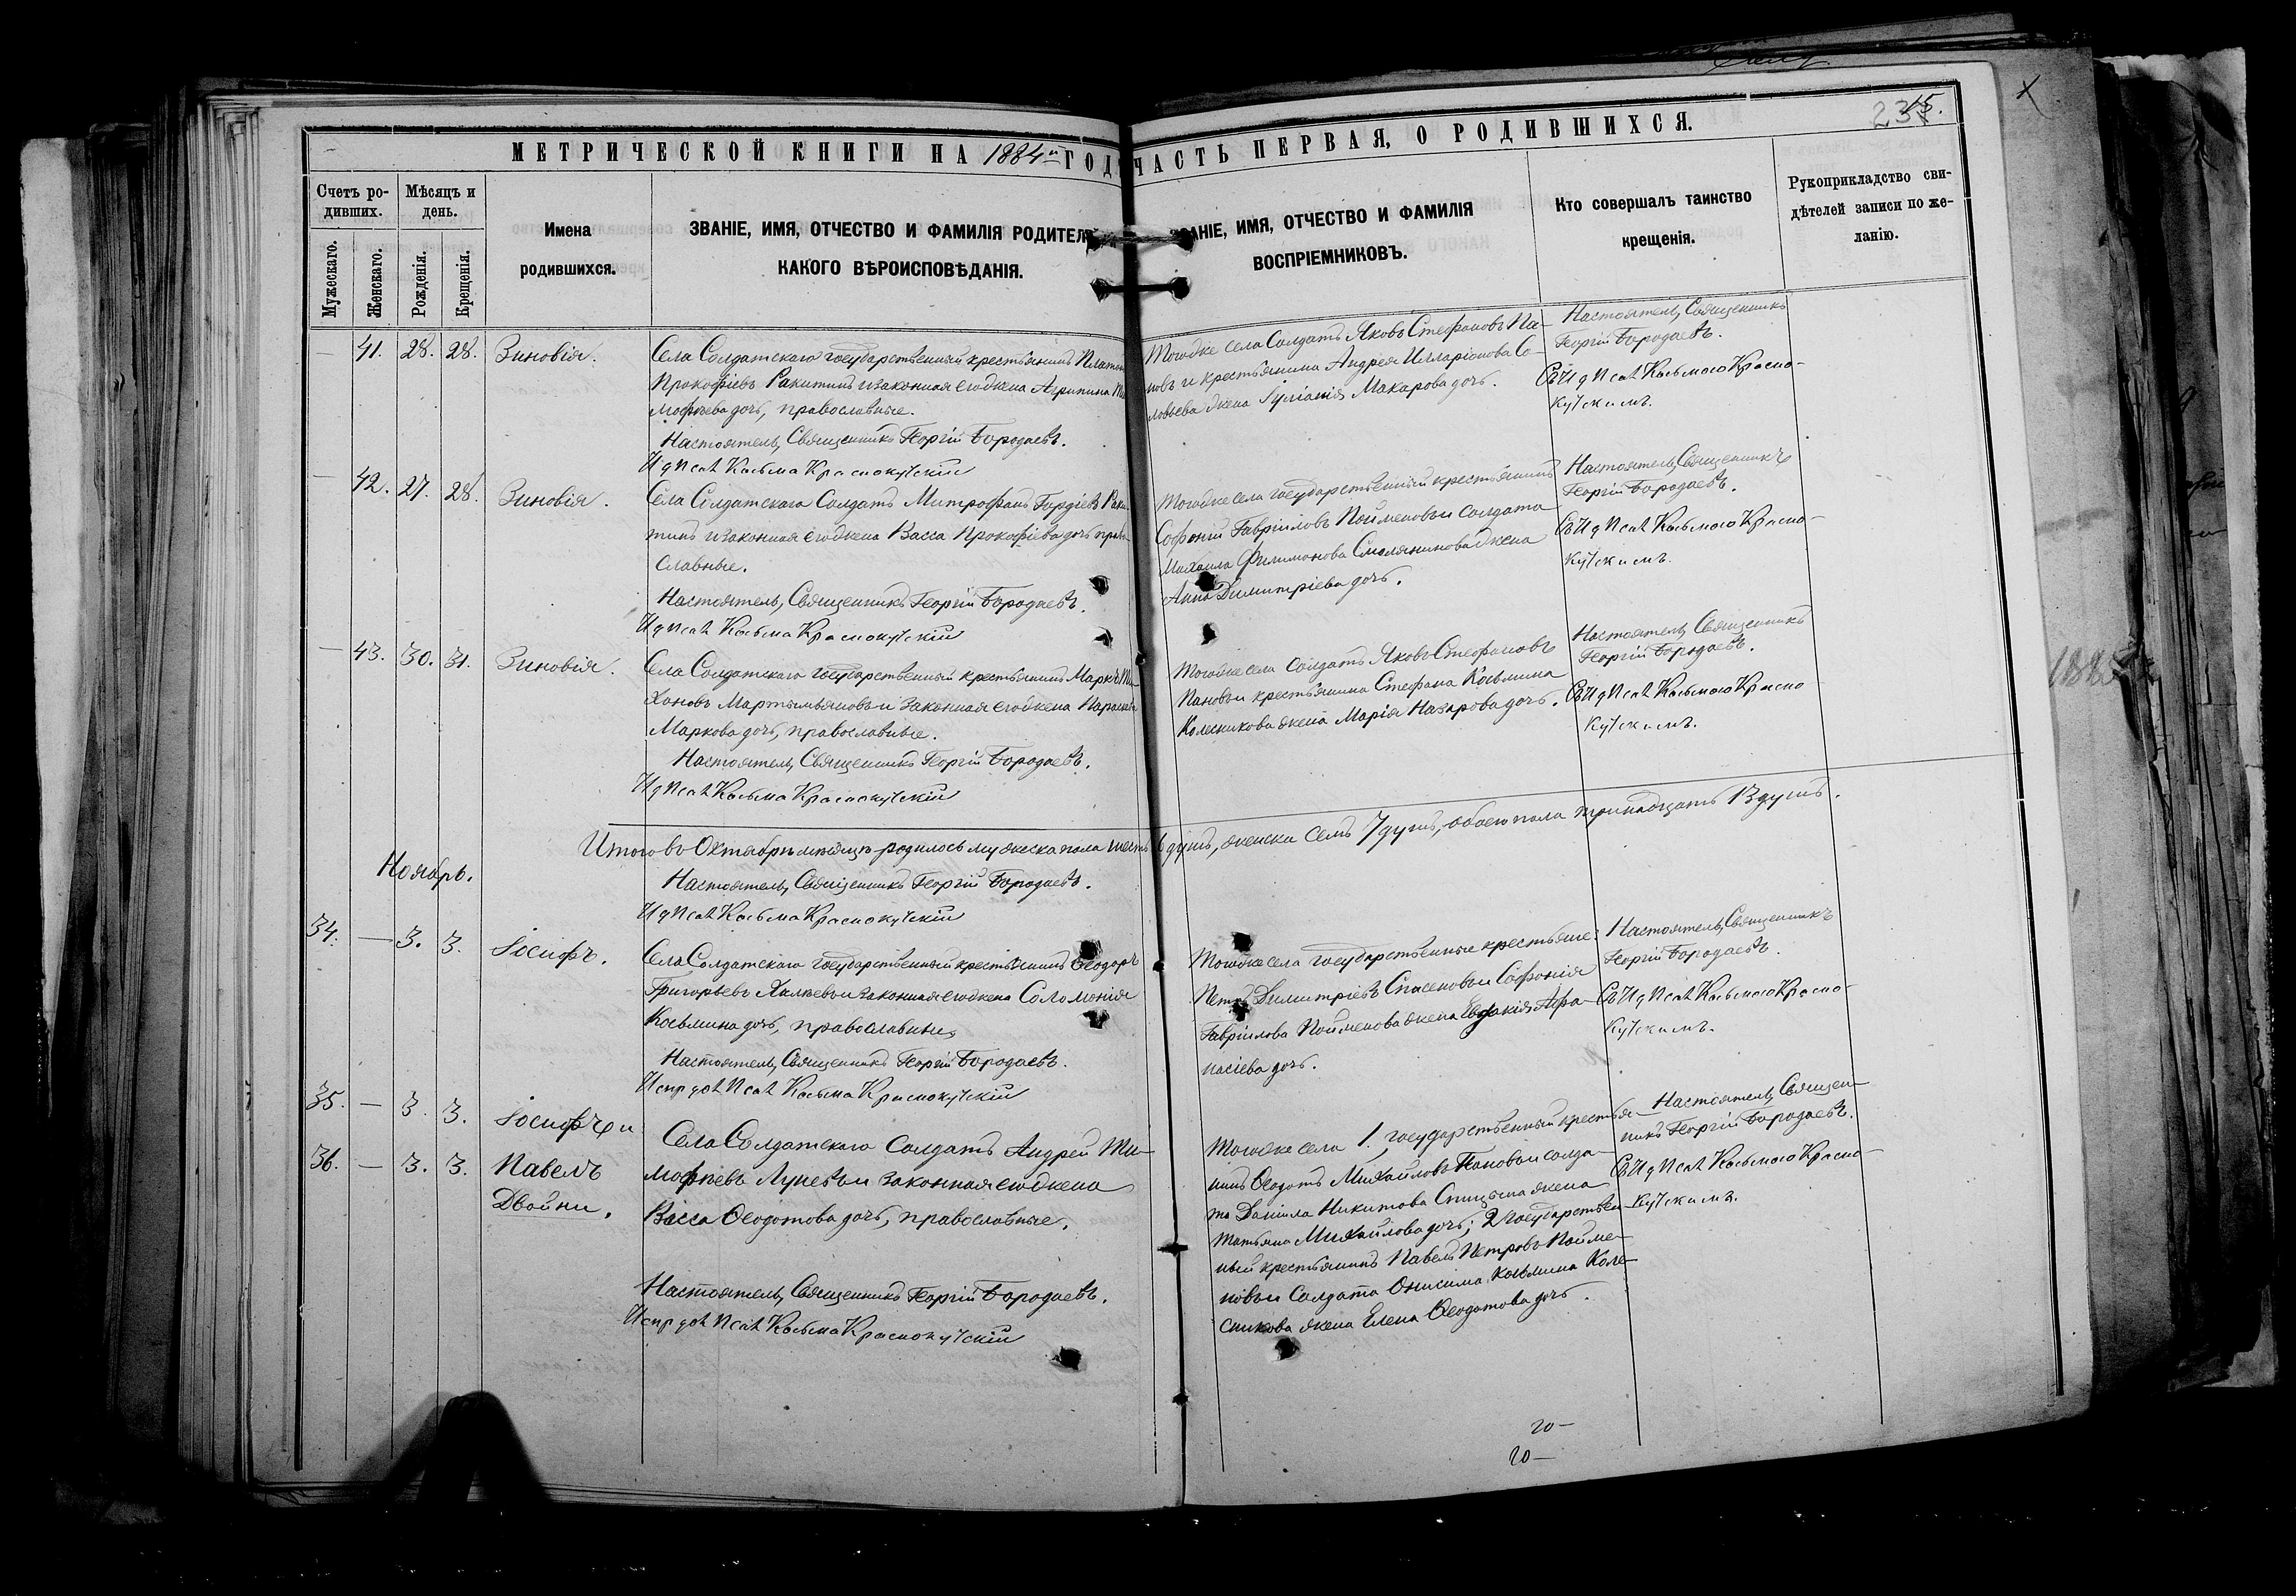 МЕТРИЧЕСКОЙ КНИГИ НА 1884й ГОД
ЧАСТЬ ПЕРВАЯ, О РОДИВШИХСЯ.
15.
Счетъ ро-
дивших.
Мѣсяцъ и
день.
Мужескаго.
Женскаго.
Рожденія.
Крещенія.
Имена
родившихся.
ЗВАНІЕ, ИМЯ, ОТЧЕСТВО И ФАМИЛІЯ РОДИТЕЛ
КАКОГО ВѢРОИСПОВѢДАНІЯ.
ЗВАНІЕ, ИМЯ, ОТЧЕСТВО И ФАМИЛІЯ
ВОСПРІЕМНИКОВЪ.
Кто совершалъ таинство
крещенія.
Рукоприкладство сви-
дѣтелей записи по же-
ланію.
— 41. 28. 28. Зиновія.
Села Солдатскаго государственный крестьянинъ Платонъ
Прокофіевъ Ракитинъ и законная его жена Агрипина Ти
мофѣева дочь, православные.
Настоятель, Священникъ Георгій Бородаевъ.
И д Псал Косьма Краснокутскій
Тогоже села Солдатъ Яковъ Стефановъ Па-
новъ и крестьянина Андрея Илларіонова Со-
ловьева жена Іуліанія Макарова дочь.
Настоятель, Священникъ
Георгій Бородаевъ.
Съ И д Псал Косьмою Красно-
кутскимъ.
— 42. 27. 28. Зиновія.
Села Солдатскаго Солдатъ Митрофанъ Гордіевъ Раки-
тинъ и законная его жена Васса Прокофіева дочь право
славные.
Настоятель, Священникъ Георгій Бородаевъ.
И д Псал Косьма Краснокутскій
Тогоже села государственный крестьянинъ
Софоній Гавріиловъ Пойменовъ и солдата
Михаила Филимонова Смолянинова жена
Анна Димитріева дочь.
Настоятель, Священникъ
Георгій Бородаевъ.
Съ И д Псал Косьмою Красно-
кутскимъ.
— 43. 30. 31. Зиновія.
Села Солдатскаго государственный крестьянинъ Маркъ Ти
хоновъ Мартемьяновъ и законная его жена Параскева
Маркова дочь, православные.
Настоятель, Священникъ Георгій Бородаевъ.
И д Псал Косьма Краснокутскій
Тогоже села Солдатъ Яковъ Стефановъ
Пановъ и крестьянина Стефана Косьмина
Колесникова жена Марія Назарова дочь.
Настоятель, Священникъ
Георгій Бородаевъ.
Съ И д Псал Косьмою Красно
кутскимъ.
Итого въ Октябрѣ мѣсяцѣ родилось мужеска пола шесть 6 душъ, женска семь 7 душъ, обоего пола тринадцать 13 душъ.
Настоятель, Священникъ Георгій Бородаевъ.
И д Псал Косьма Краснокутскій
Ноябрь.
34. — 3. 3. Іосифъ.
Села Солдатскаго государственный крестьянинъ Ѳеодоръ
Григорьевъ Хилкевъ и законная его жена Соломонія
Косьмина дочь, православные
Настоятель, Священникъ Георгій Бородаевъ.
Испр дол Псал Косьма Краснокутскій
Тогоже села государственные крестьяне:
Петръ Димитріевъ Спасеновъ и Софонія
Гавріилова Пойменова жена Евдокія Афа-
насіева дочь.
Настоятель, Священникъ
Георгій Бородаевъ.
Съ И д Псал Косьмою Красно-
кутскимъ.
35. — 3. 3. Іосифъ и
36. — 3. 3. Павелъ
Двойни.
Села Солдатскаго солдатъ Андрей Ти-
мофѣевъ Луневъ и законная его жена
Васса Ѳеодотова дочь, православные.
Настоятель, Священникъ Георгій Бородаевъ.
Испр дол Псал Косьма Краснокутскій
Тогоже села 1. государственный крестья-
нинъ Ѳеодотъ Михайловъ Пановъ и солда-
та Даніила Никитова Спицына жена
Татьяна Михайлова дочь; 2 государствен-
ный крестьянинъ Павелъ Петровъ Пойме-
новъ и Солдата Онисима Косьмина Коле-
сникова жена Елена Ѳеодотова дочь.
Настоятель, Священ-
никъ Георгій Бородаевъ.
Съ И д Псал Косьмою Красно-
кутскимъ.
20—
20—